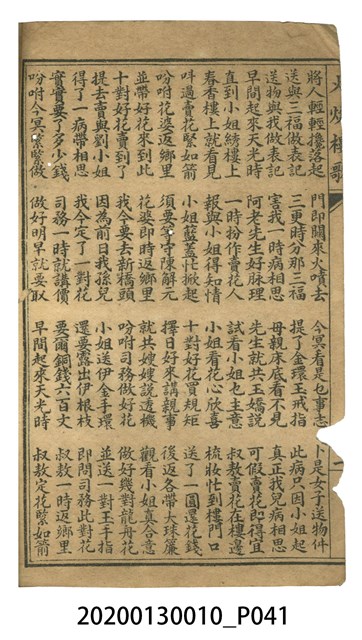 樓歌
將人輕輕擡落起　門即開來火嘖去　今冥看是乜事志　卜是女子送物件
送與三福做表記　三更時分那三福　提了金環玉戒指　此病只因小姐起
送物與我做表記　害我一時病相思　母親床底看不見　真正我兒病相思
早間起來天光時　阿老先生好脉理　先生就共玉嬌說　可假賣花即得宜
直到小姐綉樓上　一時扮作賣花人　試看小姐也主意　叔敖賣花在樓邊
春香樓上就看見　報與小姐得知情　小姐看花心欣喜　梳妝忙到樓門口
呌過賣花緊如箭　小姐籃蓋忙掀起　十對好花買規矩　送了一圓還花錢
吩咐花婆返鄉里　須要等守陳解元　擇日好來講親事　後返各帶大珠簾
並帶好花來到此　花婆即時返鄉里　就共嫂嫂說透機　觀看小姐真合意
十對好花賣到了　我今要去新橋頭　吩咐司務做好花　做好幾對龍舟花
提去賣與劉小姐　因為前日我孫兒　小姐送伊金手環　並送一對玉手指
得了一病帶相思　我今定了一對花　還要露出伊根枝　即問司務此對花
實實要了多少錢　司務一時就講價　要爾銅錢六百文　叔敖一時返鄉里
吩咐今冥緊緊做　做好明早就要取　早間起來天光時　叔敖定花緊如箭
20200130010_P041